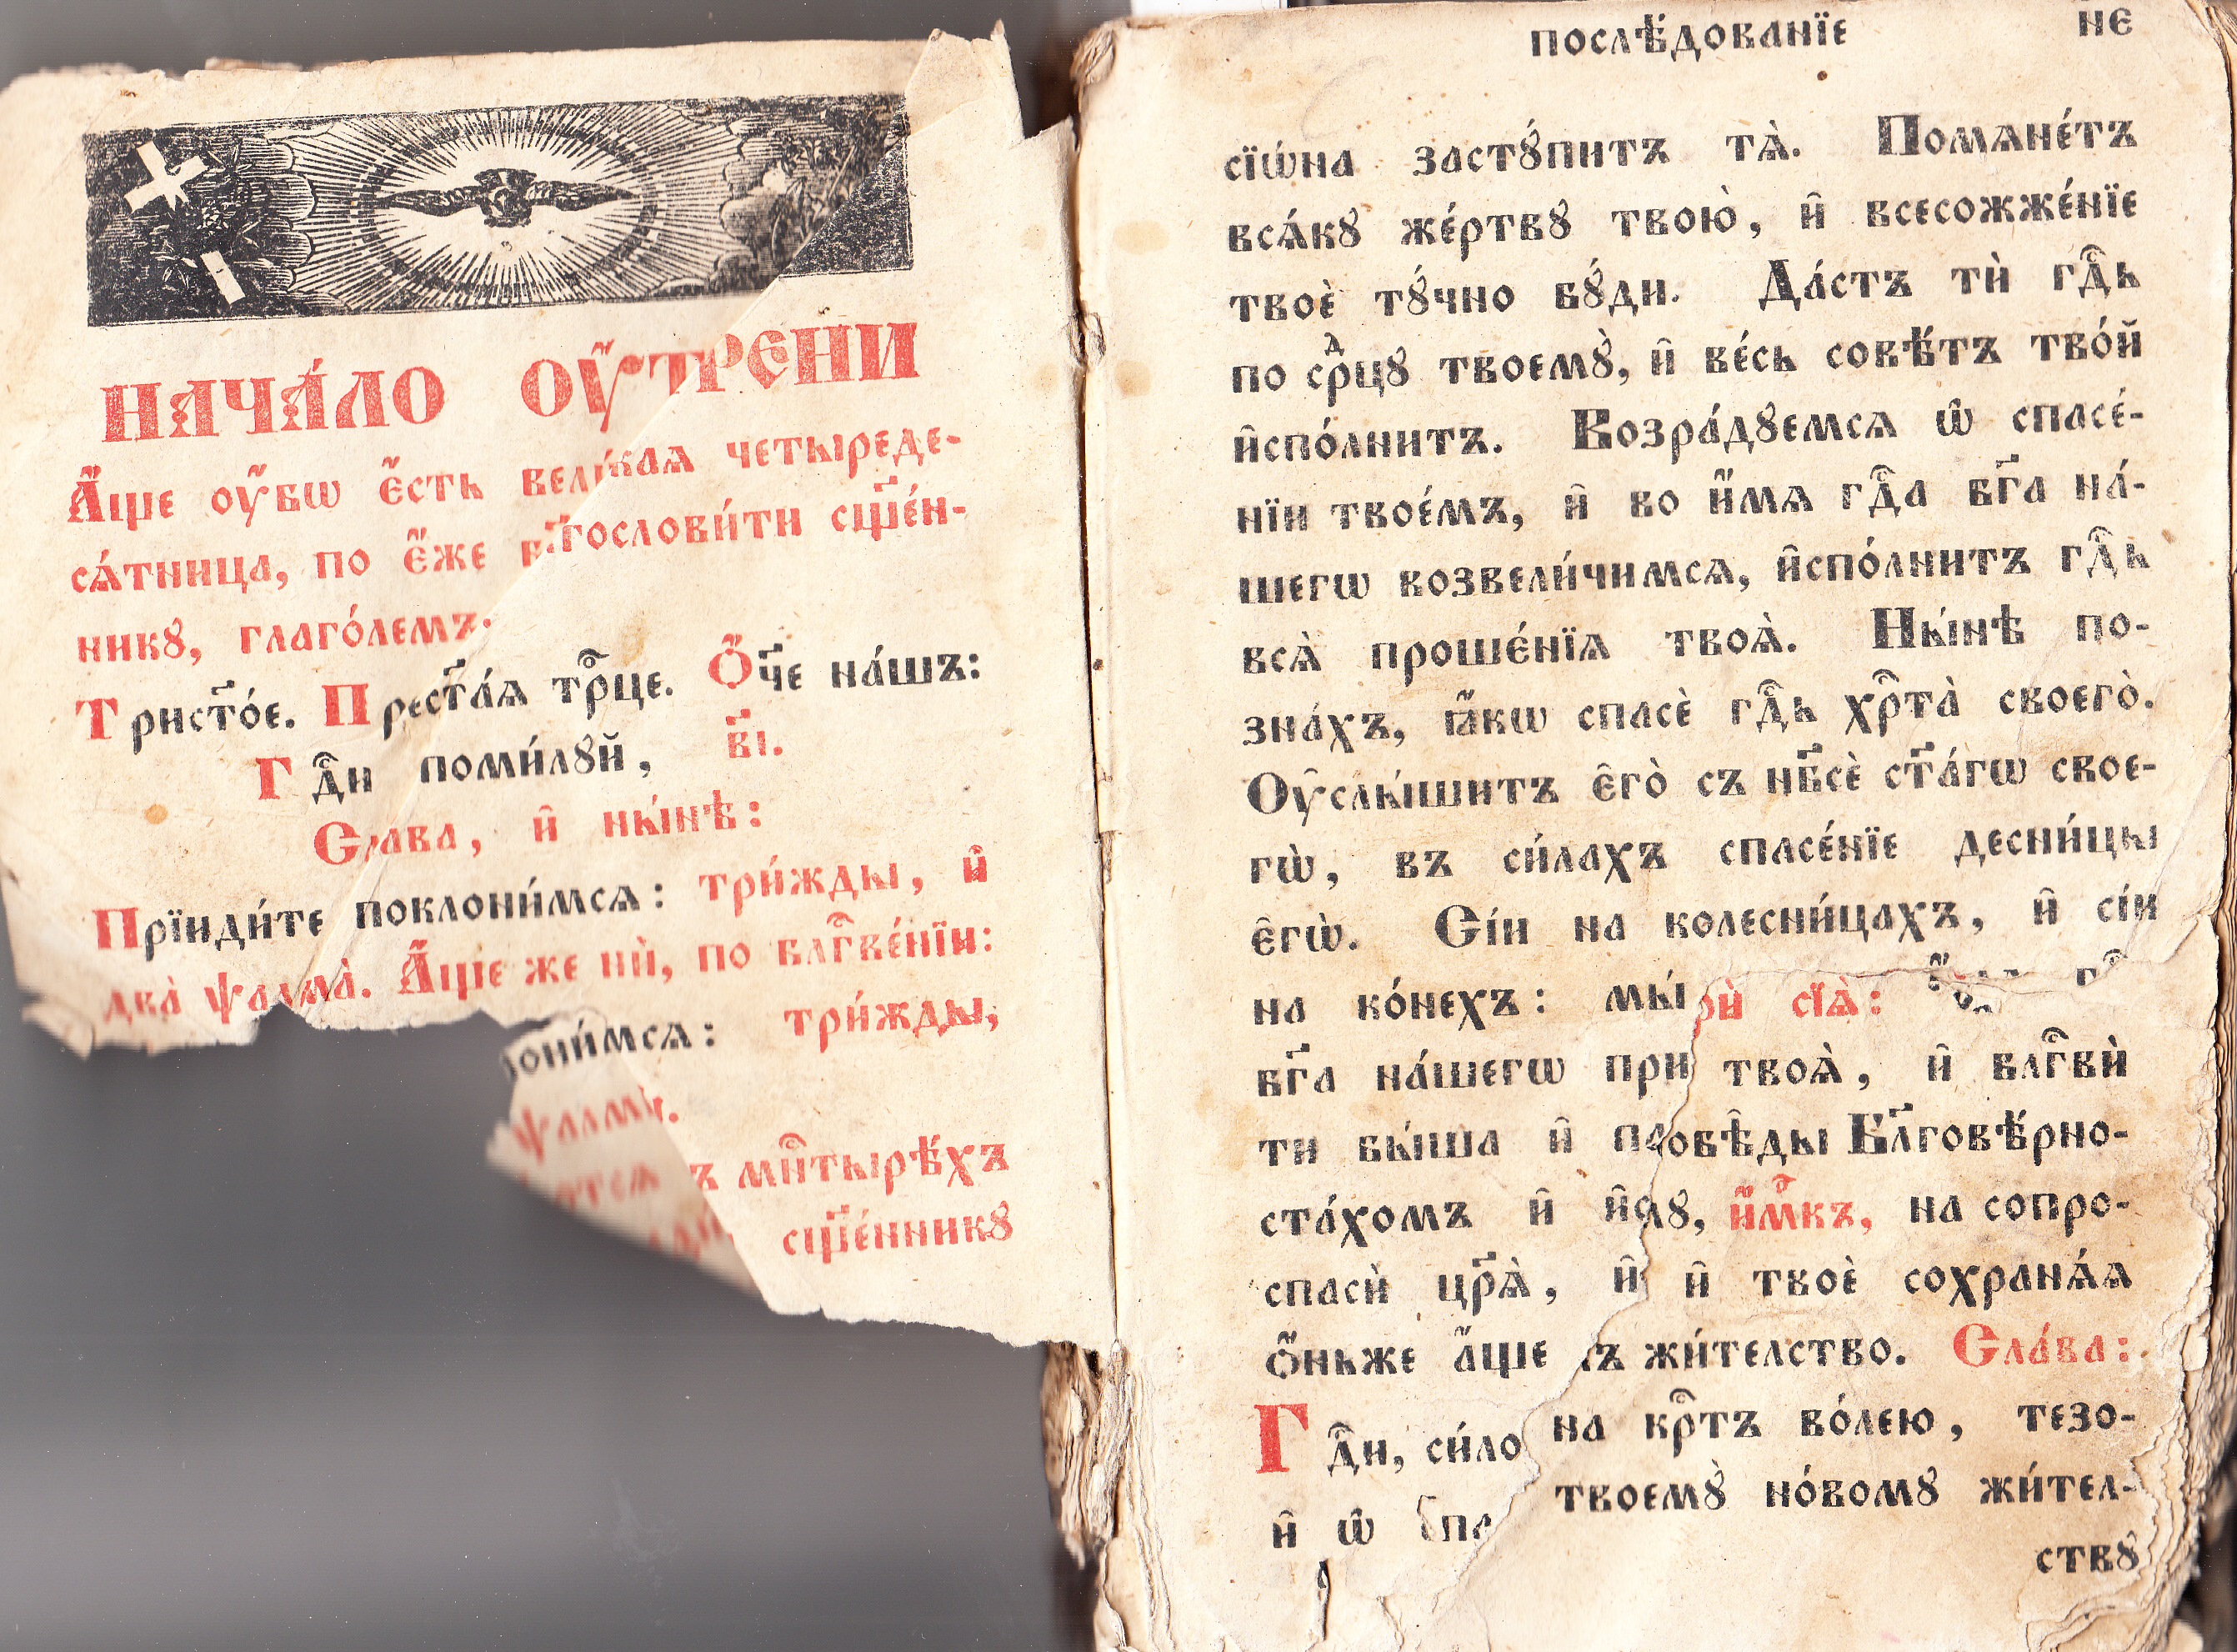 НАЧА́ЛО ОУ҆́ТРЕНИ
А҆́ще оу҆́бѡ є҆́сть вели́каѧ четыреде-
сѧ́тница, по є҆́же гослови́ти сщ҃е́н-
никꙋ, глаго́лемъ.
Трист҃о́е. Прест҃а́ѧ трⷪ҇це. Ѻ҆́ч҃е на́шъ:
Гдⷭ҇и поми́лꙋй, в҃і.
Слава, и҆ ны́нѣ:
Прїиди́те поклони́мсѧ: три́жды, и҆
два̀ ѱалма̀. А҆́ще же нѝ, по блгⷭ҇ве́нїи:
они́мсѧ: три́жды,
ѱалмы̀.
ъ мн҇тырѣ́хъ
сщ҃е́нникꙋ
послѣ́дованїе н҃е
сїѡ́на застꙋ́питъ тѧ̀. Помѧне́тъ
всѧ́кꙋ же́ртвꙋ твою̀, и҆ всесожже́нїе
твоѐ тꙋ́чно бꙋ́ди. Да́стъ тѝ гдⷭ҇ь
по срⷣцꙋ твоемꙋ̀, и҆ ве́сь совѣ́тъ тво́й
и҆спо́лнитъ. Возра́дꙋемсѧ ѡ҆ спасе́-
нїи твое́мъ, и҆ во и҆́мѧ гдⷭ҇а бг҃а на́-
шегѡ возвели́чимсѧ, и҆спо́лнитъ гдⷭ҇ь
всѧ̀ проше́нїѧ твоѧ̀. Ны́нѣ по-
зна́хъ, ꙗ҆́кѡ спасѐ гдⷭ҇ь хрⷭ҇та̀ своего̀.
Оу҆слы́шитъ є҆го̀ съ нб҃сѐ ст҃а́гѡ свое-
гѡ̀, въ си́лахъ спасе́нїе десни́цы
є҆гѡ̀. Сі́и на колесни́цахъ, и҆ сі́и
на ко́нехъ: мы́ сїѧ̀:
бг҃а на́шегѡ при твоѧ̀, и҆ блгⷭ҇вѝ
ти бы́ша и҆ п обѣ̑ды Бл҃говѣ́рно-
ста́хомъ и҆ и҆ лꙋ, и҆́мⷬ҇къ, на сопро-
спасѝ цр҃ѧ̀, и҆ и҆ твоѐ сохранѧ́ѧ
ѻ҆́ньже а҆́ще ъ жи́телство. Сла́ва:
Гдⷭ҇и, си́ло на крⷭ҇тъ во́лею, тезо-
и҆ ѡ҆ спа твоемꙋ̀ но́вомꙋ жи́тел-
ствꙋ